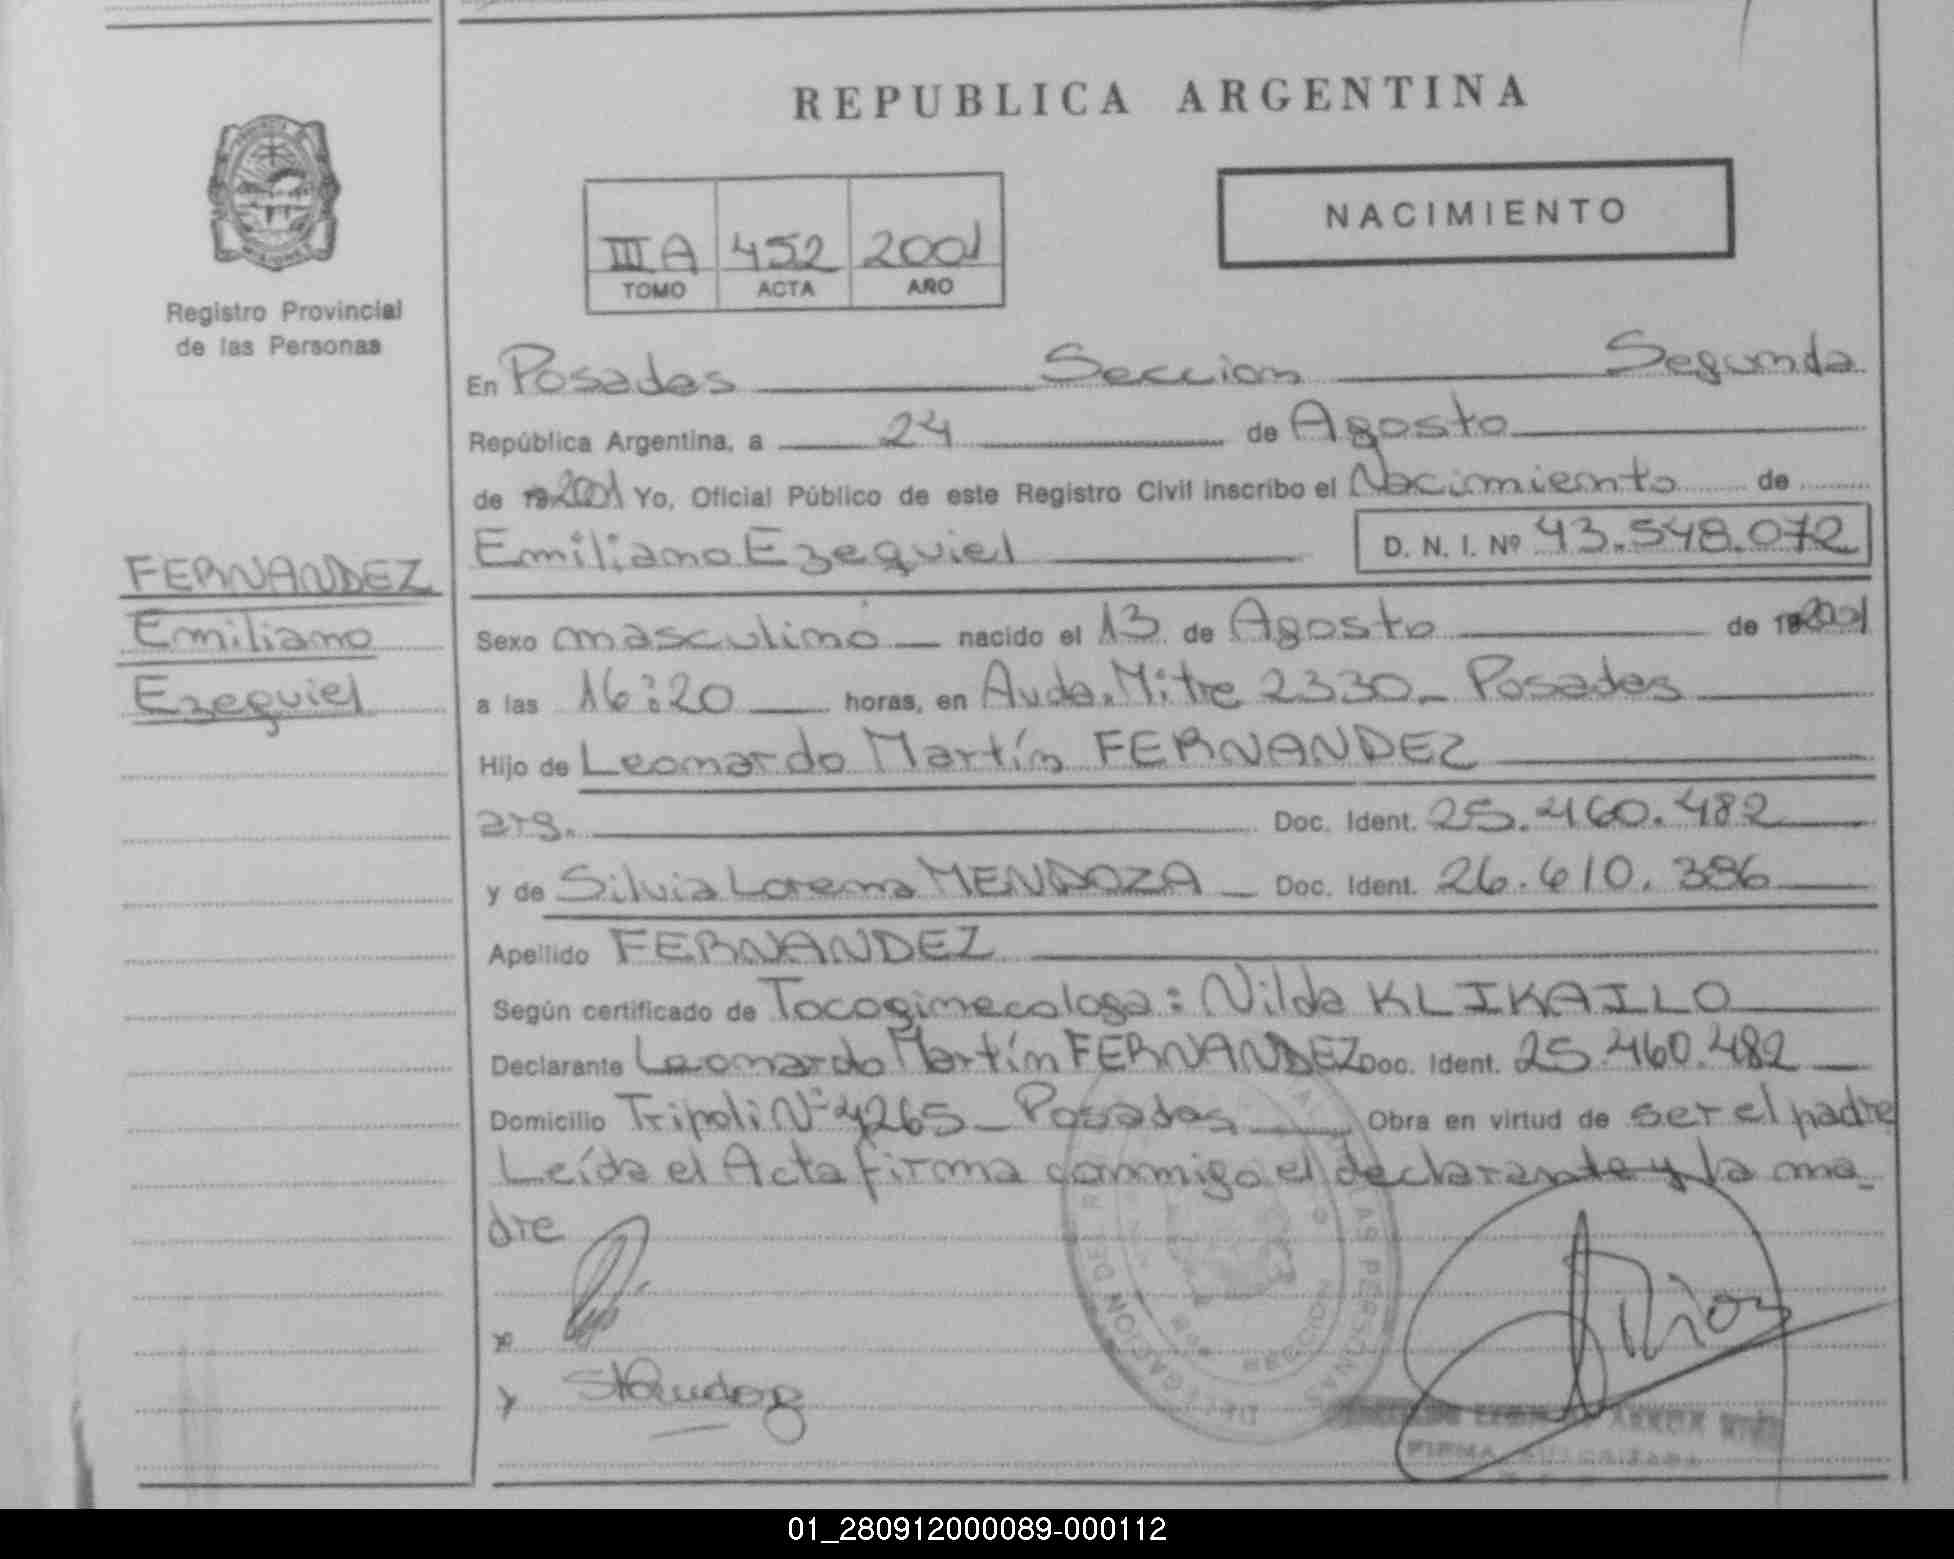 REPUBLICA ARGENTINA
NACIMIENTO
III A 452 2001
TOMO ACTA AÑO
Registro Provincial
de las Personas
En Posadas Seccion Segunda
República Argentina, a 24 de Agosto
de 19 2001 Yo, Oficial Público de este Registro Civil inscribo el Nacimiento de
Emiliano Ezequiel D. N. I. Nº 43.548.072
FERNANDEZ
Emiliano
Ezequiel
Sexo masculino nacido el 13 de Agosto de 19 2001
a las 16:20 horas, en Avda. Mitre 2330 _ Posadas
Hijo de Leonardo Martín FERNANDEZ
arg. Doc. Ident. 25.460.482
y de Silvia Lorena MENDOZA _ Doc. Ident. 26.610.386
Apellido FERNANDEZ
Según certificado de Tocoginecologa: Nilda KLIKAILO
Declarante Leonardo Martín FERNANDEZ Doc. Ident. 25.460.482
Domicilio Tripoli Nº 4265 _ Posadas Obra en virtud de ser el padre
Leída el Acta firma conmigo el declarante y la ma_
dre
DELEGACION DEL R AS PERSONAS
SECCION
FIRMA AUTORIZADA
01_280912000089-000112